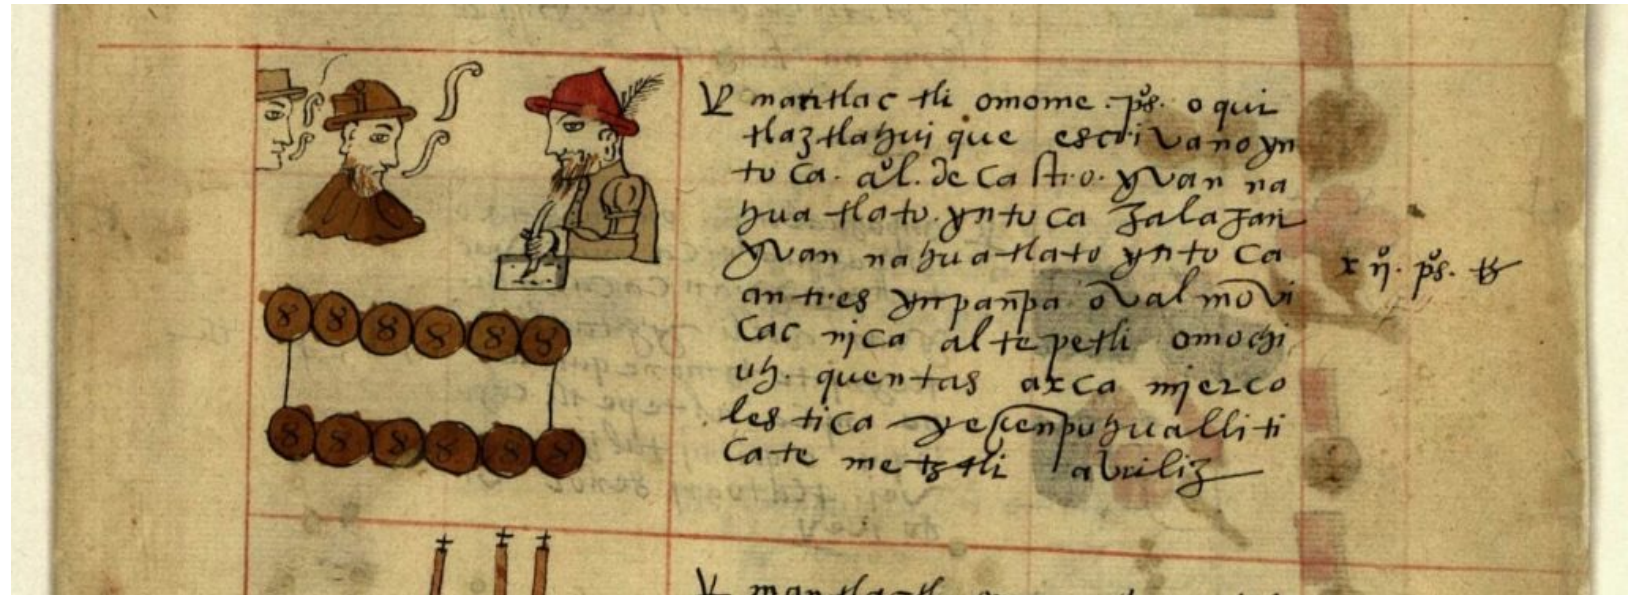 matlactli omome. ps. o qui
tlaztlahui que escrivano yn
tuca. al. de castro. yvan na
huatlato. yntuca Jalajan
yvan nahuatlato yntuca
antres ynpanpa ovalmovi
cac nica altepetli omochi
uh. quentas axca mierco
les tica ye cenpuhualli ti
cate metztli abriliz
xii. ps.